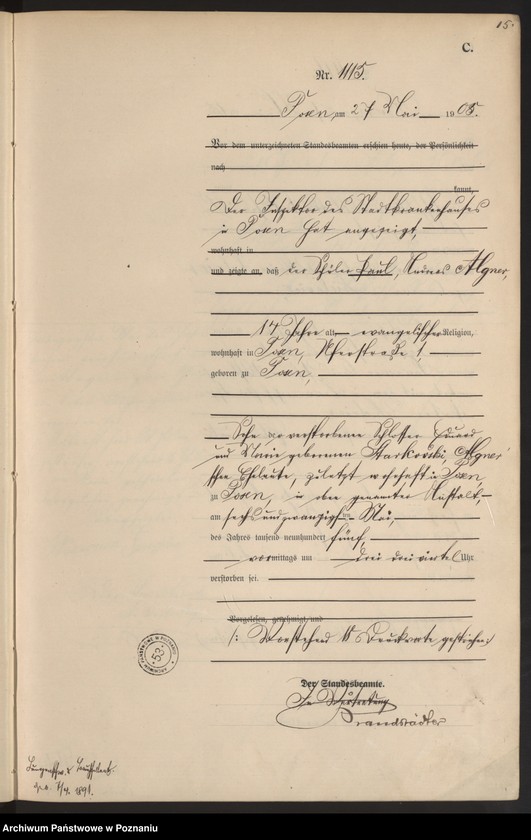 15.
C.
Nr. 1115.
Posen, am 27 Mai 1905.
Vor dem unterzeichneten Standesbeamten erschien heute, der Persönlichkeit
nach
kannt,
Der Inspektor des Stadtkrankenhauses
in Posen hat angezeigt,
wohnhaft in
und zeigte an, daß der Schüler Paul, Algner,
14 Jahre alt, evangelischer Religion,
wohnhaft in Posen, 1,
geboren zu Posen,
Sohn des verstorbenen Schlosser Eduard
und Marie geborenen Starkowski Algner'
schen Eheleute, zuletzt wohnhaft in Posen,
zu Posen, in oben genannter Anstalt,
am sechsundzwanzigsten Mai,
des Jahres tausend neunhundert fünf,
vormittags um drei drei viertel Uhr
verstorben sei.
Vorgelesen, genehmigt und
/: Vorstehend Druckworte gestrichen :/
Der Standesbeamte.
In Vertretung
Brandstädter
ARCHIWUM PAŃSTWOWE W POZNANIU
53
1891.
Archiwum Państwowe w Poznaniu